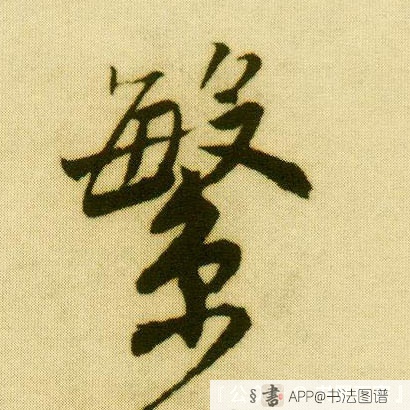 繁
公 § 書 APP@书法图谱 」